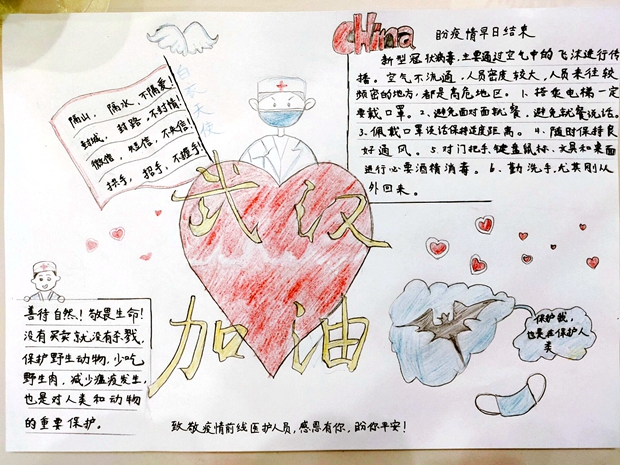 China
盼疫情早日结束
新型冠状病毒,主要通过空气中的飞沫进行传
播。空气不流通,人员密度较大,人员来往较
频密的地方,都是高危地区。1、搭乘电梯一定
要戴口罩。2、避免面对面就餐,避免就餐说话。
3、佩戴口罩说话保持适度距离。4、随时保持良
好通风。5、对门把手、键盘鼠标、文具和桌面
进行必要酒精消毒。6、勤洗手,尤其刚从
外回来。
白衣天使
隔山,隔水,不隔爱!
封城,封路,不封情!
微信,短信,不失信!
拱手,招手,不握手!
武汉
加油
善待自然!敬畏生命!
没有买卖就没有杀戮,
保护野生动物,少吃
野生肉,减少瘟疫发生,
也是对人类和动物
的重要保护。
保护我,
也是在保护人
类
致敬疫情前线医护人员,感恩有你,盼你平安!